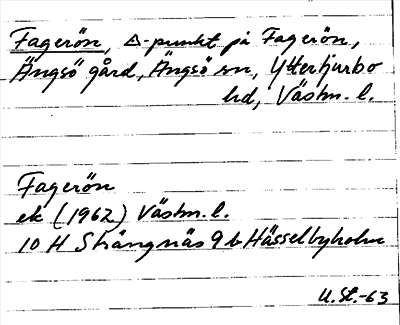 Fagerön, △-punkt på Fagerön,
Ängsö gård, Ängsö sn, Yttertjurbo
hd, Västm. l.
Fagerön
ek (1962) Västm. l.
10 H Strängnäs 9 b Hässelbyholm
U.St.-63